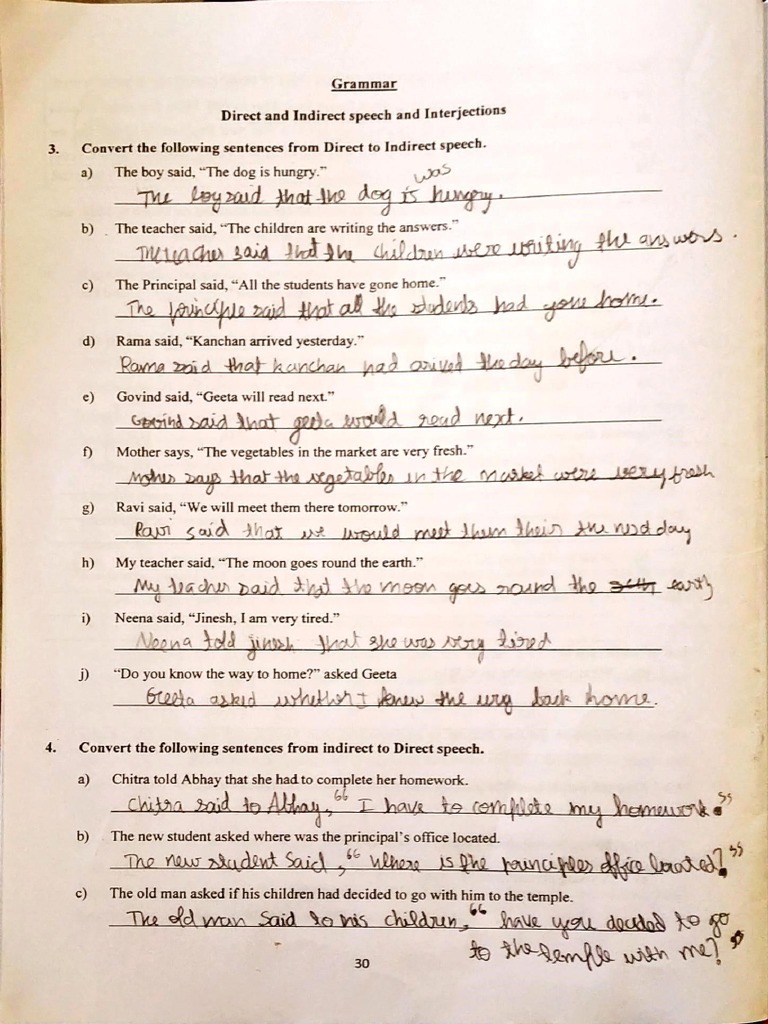 Grammar
Direct and Indirect speech and Interjections
3. Convert the following sentences from Direct to Indirect speech.
a) The boy said, “The dog is hungry.”
was
The boy said that the dog is hungry.
b) The teacher said, “The children are writing the answers.”
The teacher said that the children were writing the answers.
c) The Principal said, “All the students have gone home.”
The principle said that all the students had gone home.
d) Rama said, “Kanchan arrived yesterday.”
Rama said that kanchan had arived the day before.
e) Govind said, “Geeta will read next.”
Govind said that geeta would read next.
f) Mother says, “The vegetables in the market are very fresh.”
Mother says that the vegetables in the market were very fresh
g) Ravi said, “We will meet them there tomorrow.”
Ravi said that we would meet them their the next day
h) My teacher said, “The moon goes round the earth.”
My teacher said that the moon goes round the earth
i) Neena said, “Jinesh, I am very tired.”
Neena told jinesh that she was very tired
j) “Do you know the way to home?” asked Geeta
Geeta asked whether I knew the way back home.
4. Convert the following sentences from indirect to Direct speech.
a) Chitra told Abhay that she had to complete her homework.
Chitra said to Abhay, “I have to complete my homework.”
b) The new student asked where was the principal’s office located.
The new student said, “Where is the principles office located?”
c) The old man asked if his children had decided to go with him to the temple.
The old man said to his children, “have you decided to go
to the temple with me?”
30